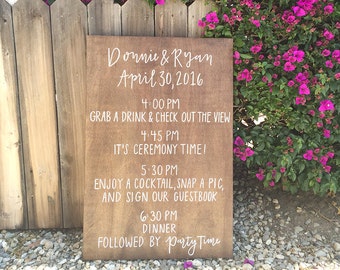 Donnie & Ryan
April 30, 2016
4:00 PM
GRAB A DRINK & CHECK OUT THE VIEW
4:45 PM
IT'S CEREMONY TIME!
5:30 PM
ENJOY A COCKTAIL, SNAP A PIC,
AND SIGN OUR GUESTBOOK
6:30 PM
DINNER
FOLLOWED BY Party Time